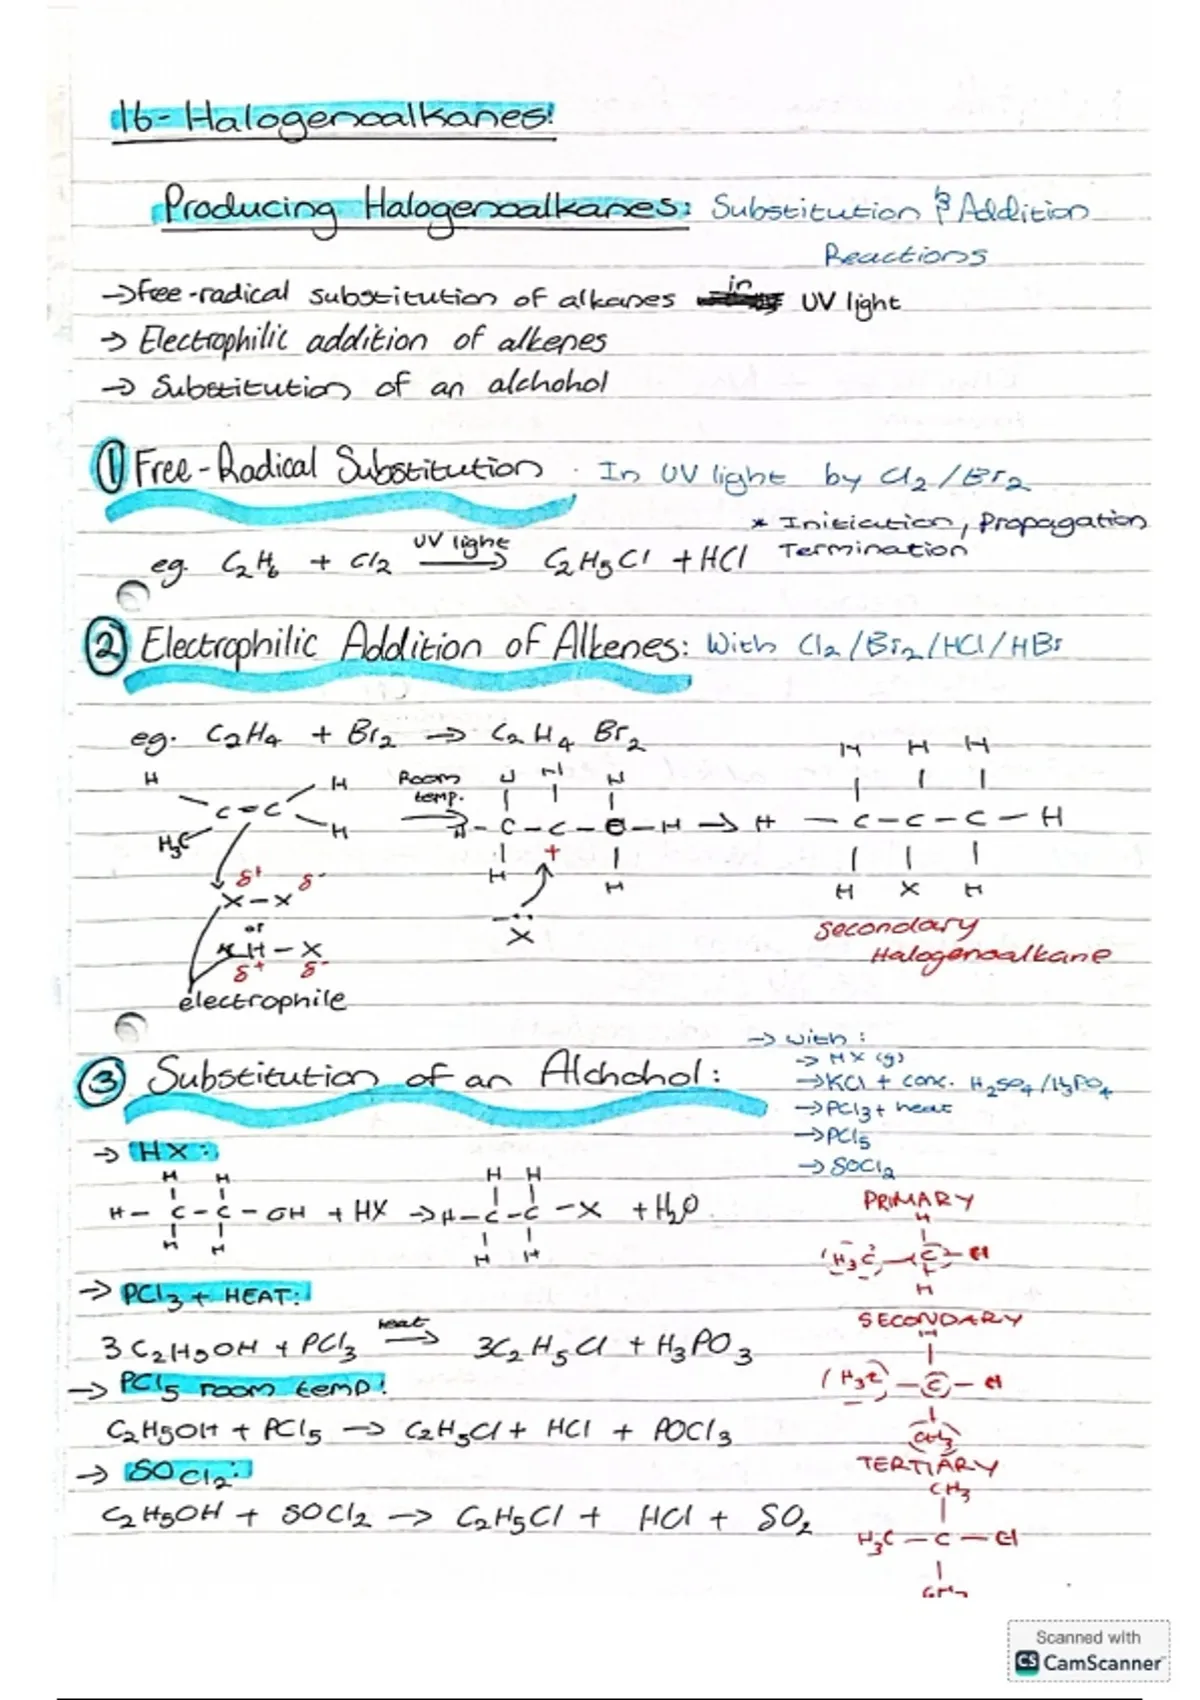 16- Halogenoalkanes!
Producing Halogenoalkanes: Substitution & Addition
Reactions
→ free-radical substitution of alkanes in UV light
→ Electrophilic addition of alkenes
→ Substitution of an alchohol
① Free-Radical Substitution · In UV light by Cl2/Br2
* Initiation, Propagation
Termination
eg. C2H6 + Cl2 UV light → C2H5Cl + HCl
② Electrophilic Addition of Alkenes: With Cl2/Br2/HCl/HBr
eg. C2H4 + Br2 → C2H4 Br2
H H H
H H Room temp. → H H H
C = C H - C - C - C - H → H - C - C - C - H
H3C H H + H H X H
δ+ δ-
X - X
or
H - X
δ+ δ-
:X-
secondary
Halogenoalkane
electrophile
③ Substitution of an Alchohol:
→ with:
→ HX (g)
→ KCl + conc. H2SO4/H3PO4
→ PCl3 + heat
→ PCl5
→ SOCl2
→ HX:
H H H H
H - C - C - OH + HX → H - C - C - X + H2O
H H H H
PRIMARY
H
(H3C) - C - Cl
H
→ PCl3 + HEAT:
3 C2H5OH + PCl3 heat → 3C2H5Cl + H3PO3
SECONDARY
H
(H3C) - C - Cl
CH3
→ PCl5 room temp!
C2H5OH + PCl5 → C2H5Cl + HCl + POCl3
→ SOCl2:
C2H5OH + SOCl2 → C2H5Cl + HCl + SO2
TERTIARY
CH3
H3C - C - Cl
CH3
Scanned with
CS CamScanner